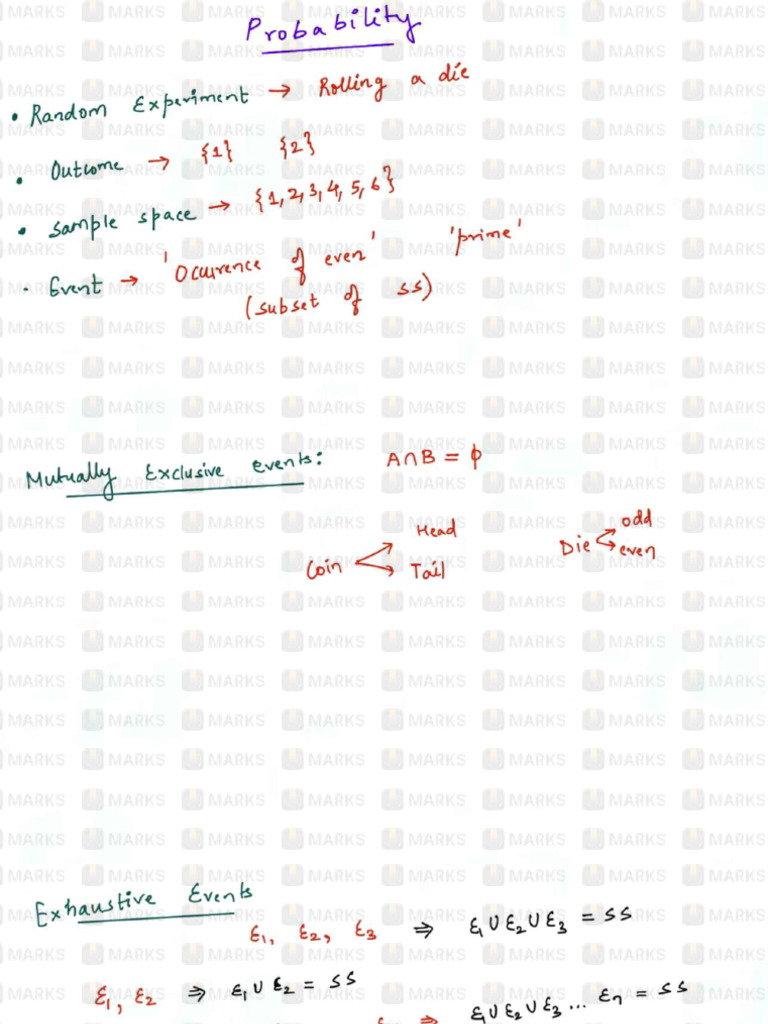 Probability
• Random Experiment → Rolling a die
• Outcome → {1} {2}
• Sample space → {1, 2, 3, 4, 5, 6}
• Event → 'Ocurrence of even' 'prime'
(subset of SS)
Mutually Exclusive events: A∩B = ϕ
Coin Head Tail
Die odd even
Exhaustive Events
ε₁, ε₂, ε₃ ⇒ ε₁∪ε₂∪ε₃ = SS
ε₁, ε₂ ⇒ ε₁∪ε₂ = SS
⇒ ε₁∪ε₂∪ε₃... εn = SS
MARKS